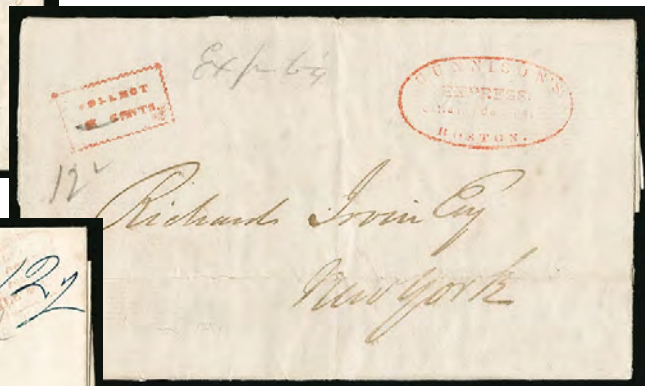 COLLECT
CENTS.
GUNNISON'S
EXPRESS.
BOSTON.
12
Richard Irvin Esq
New York
12½